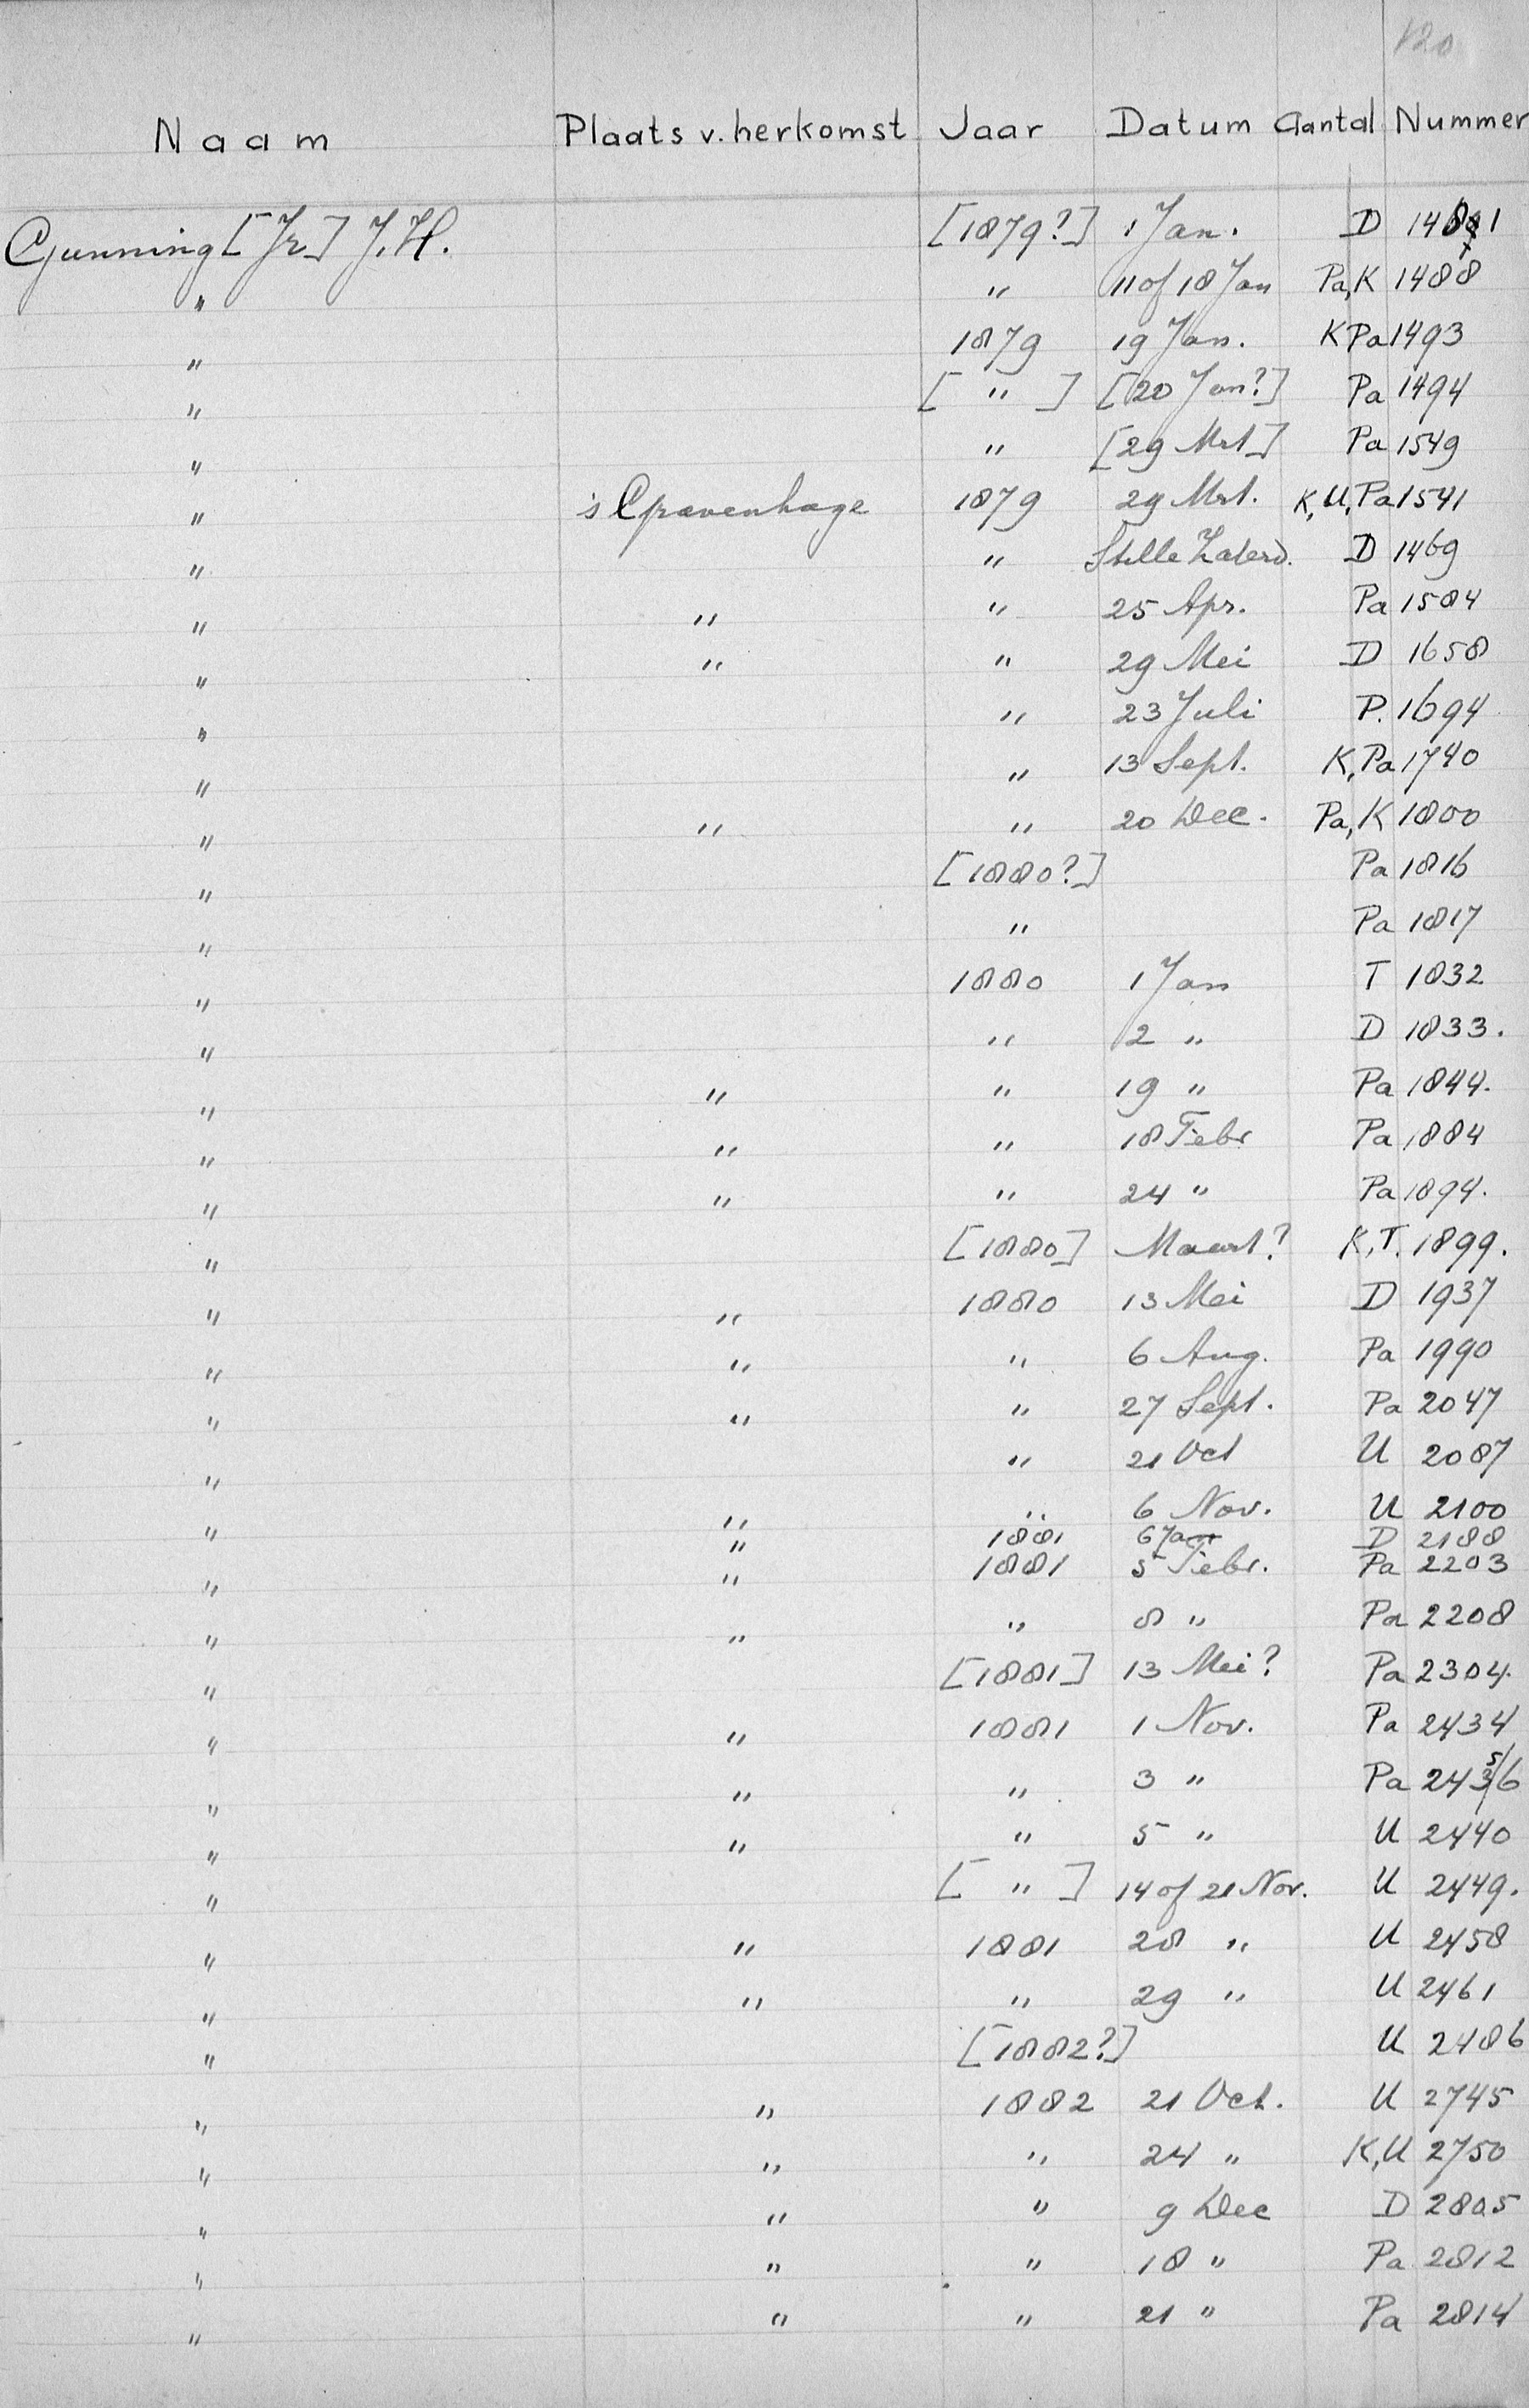 120
Naam Plaats v. herkomst Jaar Datum Aantal Nummer
Gunning [Jr] J.H. [1879?] 1 Jan. D 1481
" " 11 of 18 Jan Pa,K 1488
" 1879 19 Jan. K Pa 1493
" [ " ] [20 Jan?] Pa 1494
" " [29 Mrt] Pa 1549
" 's Gravenhage 1879 29 Mrt. K,U,Pa 1541
" " Stille Zaterd. D 1469
" " " 25 Apr. Pa 1584
" " " 29 Mei D 1658
" " 23 Juli P. 1694
" " 13 Sept. K,Pa 1740
" " " 20 Dec. Pa,K 1800
" [1880?] Pa 1816
" " Pa 1817
" 1880 1 Jan T 1832
" " 2 " D 1833.
" " " 19 " Pa 1844.
" " " 18 Febr Pa 1884
" " " 24 " Pa 1894.
" [1880] Maart? K,T. 1899.
" " 1880 13 Mei D 1937
" " " 6 Aug. Pa 1990
" " " 27 Sept. Pa 2047
" " 21 Oct U 2087
" " " 6 Nov. U 2100
" 1881 6 Jan D 2188
" " 1881 5 Febr. Pa 2203
" " " 8 " Pa 2208
" [1881] 13 Mei? Pa 2304.
" " 1881 1 Nov. Pa 2434
" " " 3 " Pa 2435/6
" " " 5 " U 2440
" [ " ] 14 of 21 Nov. U 2449.
" " 1881 28 " U 2458
" " " 29 " U 2461
" [1882?] U 2486
" " 1882 21 Oct. U 2745
" " " 24 " K,U 2750
" " " 9 Dec D 2805
" " " 18 " Pa 2812
" " " 21 " Pa 2814